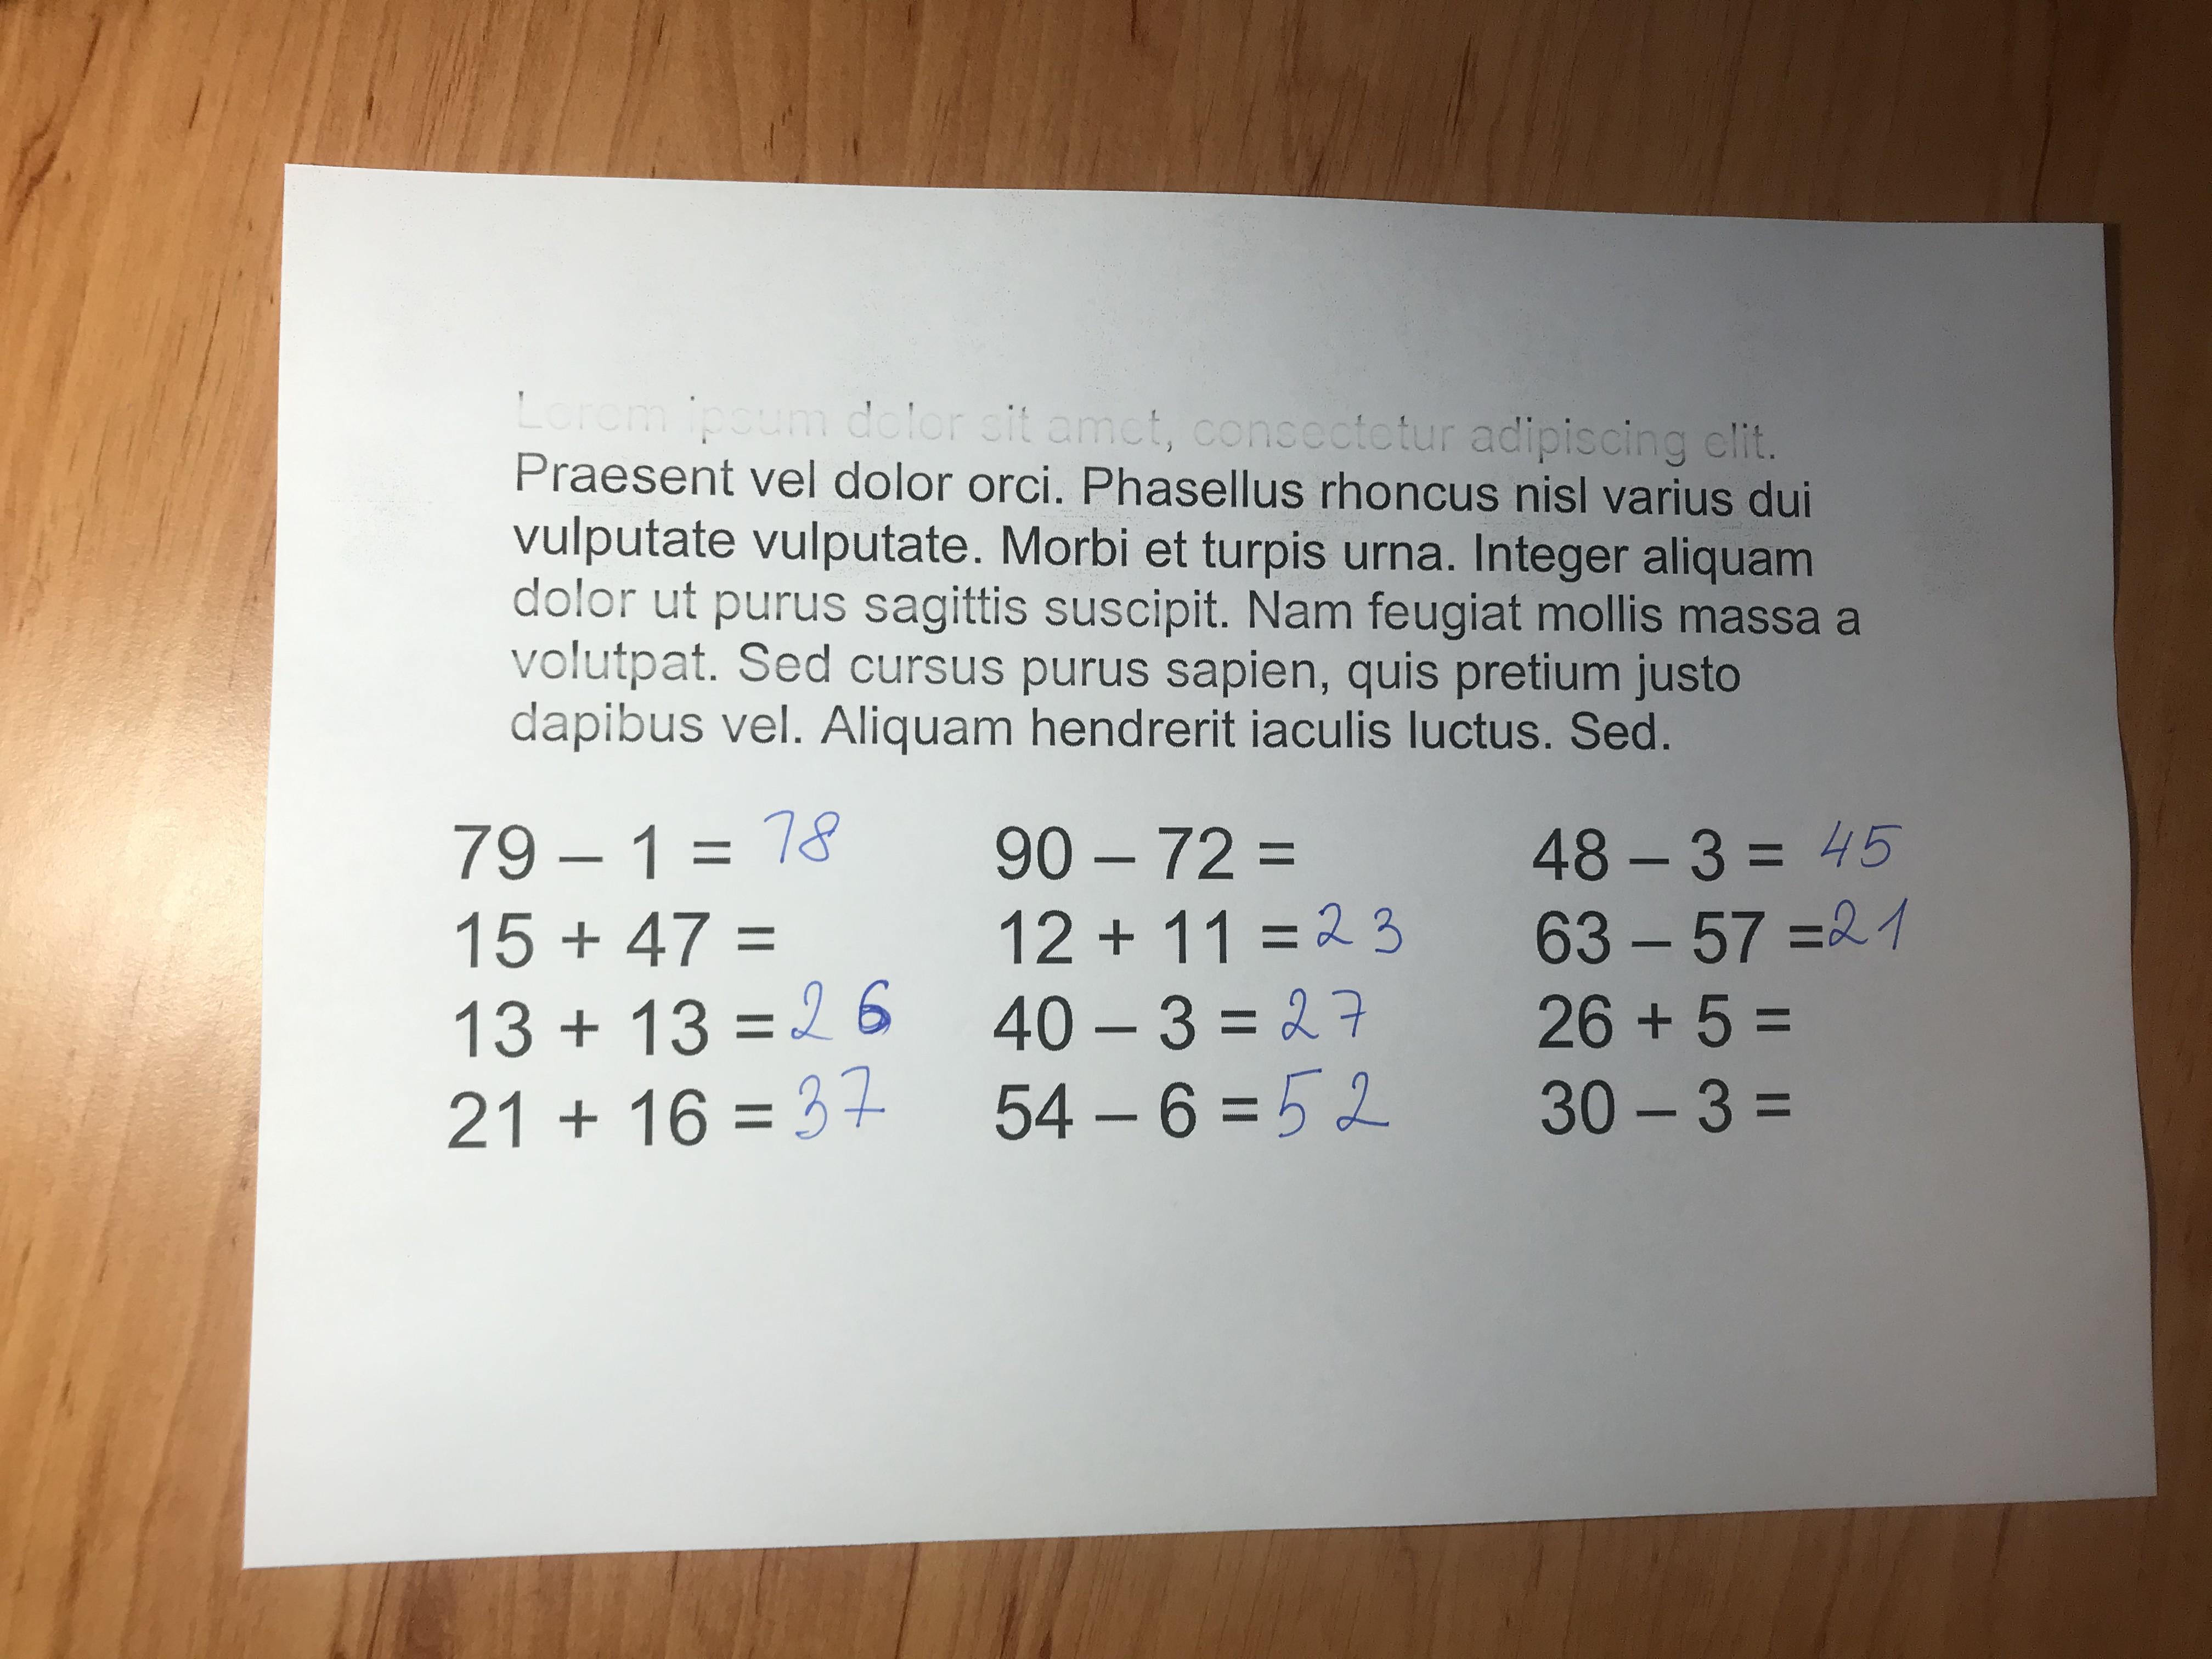 Lorem ipsum dolor sit amet, consectetur adipiscing elit.
Praesent vel dolor orci. Phasellus rhoncus nisl varius dui
vulputate vulputate. Morbi et turpis urna. Integer aliquam
dolor ut purus sagittis suscipit. Nam feugiat mollis massa a
volutpat. Sed cursus purus sapien, quis pretium justo
dapibus vel. Aliquam hendrerit iaculis luctus. Sed.
79 – 1 = 78 90 – 72 = 48 – 3 = 45
15 + 47 = 12 + 11 = 23 63 – 57 = 21
13 + 13 = 26 40 – 3 = 27 26 + 5 =
21 + 16 = 37 54 – 6 = 52 30 – 3 =